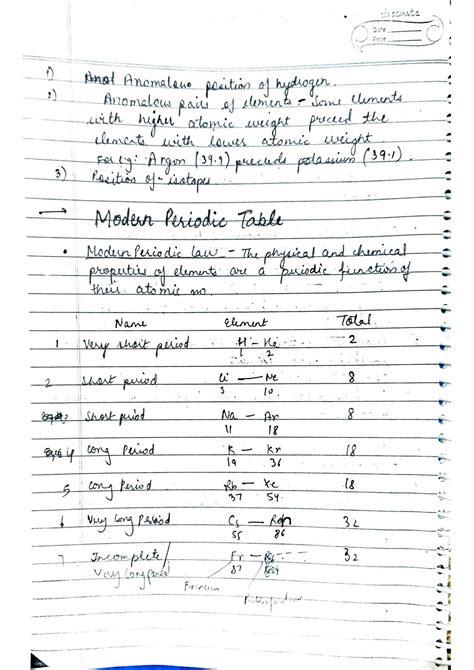 classmate
Date
Page
1) Anomalous position of hydrogen.
2) Anomalous pairs of elements - Some elements
with higher atomic weight preceed the
elements with lower atomic weight
For eg: Argon (39.9) preceeds potassium (39.1).
3) Position of isotopes.
→ Modern Periodic Table
• Modern Periodic law - The physical and chemical
properties of elements are a periodic function of
their atomic no.
Name Element Total
1 Very short period H - He 2
1 2
2 Short period Li - Ne 8
3 10
Short period Na - Ar 8
11 18
4 Long Period K - Kr 18
19 36
5 Long Period Rb - Xe 18
37 54
6 Very Long Period Cs - Rn 32
55 86
7 Incomplete/ Fr - 32
Very Long Period 87
Francium